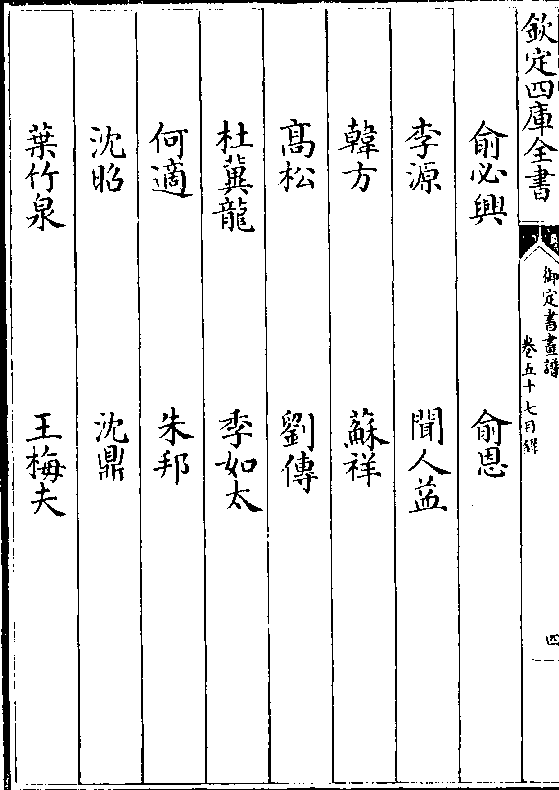 欽定四庫全書
御定書畫譜
卷五十七目錄
四
俞必興 俞恩
李源 聞人益
韓方 蘇祥
髙松 劉傳
杜冀龍 季如太
何適 朱邦
沈昭 沈鼎
葉竹泉 王梅夫